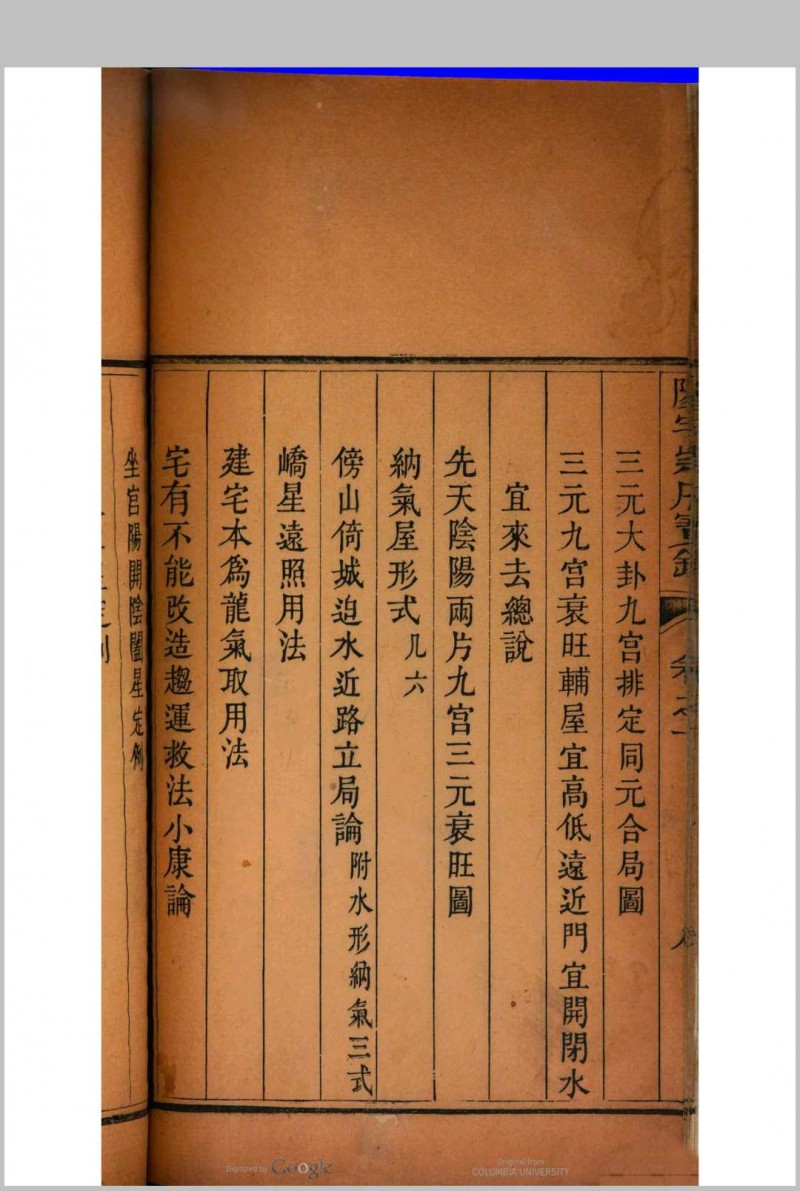 三元大卦九宫排定同元合局圖
三元九宫衰旺輔屋宜高低遠近門宜開閉水
宜來去總說
先天陰陽兩片九宫三元衰旺圖
納氣屋形式 凡六
傍山倚城迫水近路立局論 附水形納氣三式
嶠星遠照用法
建宅本爲龍氣取用法
宅有不能改造趨運救法小康論
坐宫陽開陰闔星定例
Digitized by Google
Original from
COLUMBIA UNIVERSITY